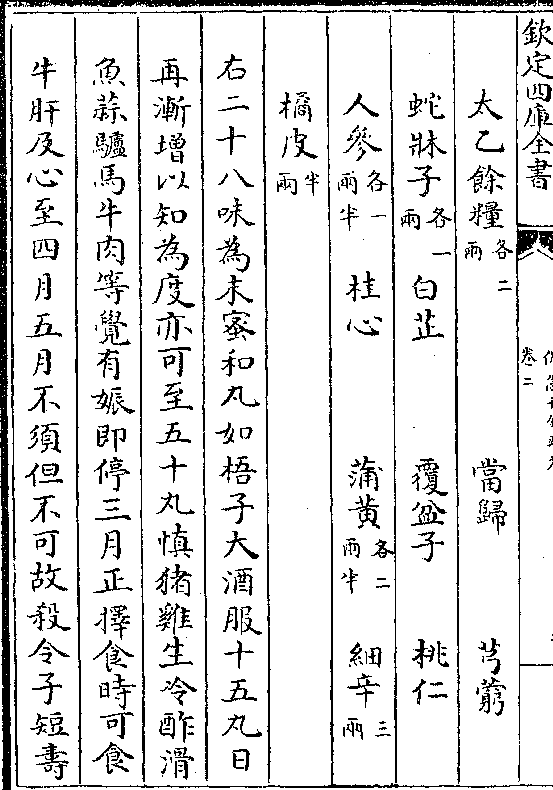 欽定四庫全書
卷二
太乙餘糧各二兩 當歸 芎藭
蛇牀子各一兩 白芷 覆盆子 桃仁
人參各一兩半 桂心 蒲黃各二兩半 細辛三兩
橘皮半兩
右二十八味為末蜜和丸如梧子大酒服十五丸日
再漸增以知為度亦可至五十丸慎猪雞生冷酢滑
魚蒜驢馬牛肉等覺有娠即停三月正擇食時可食
牛肝及心至四月五月不須但不可故殺令子短壽